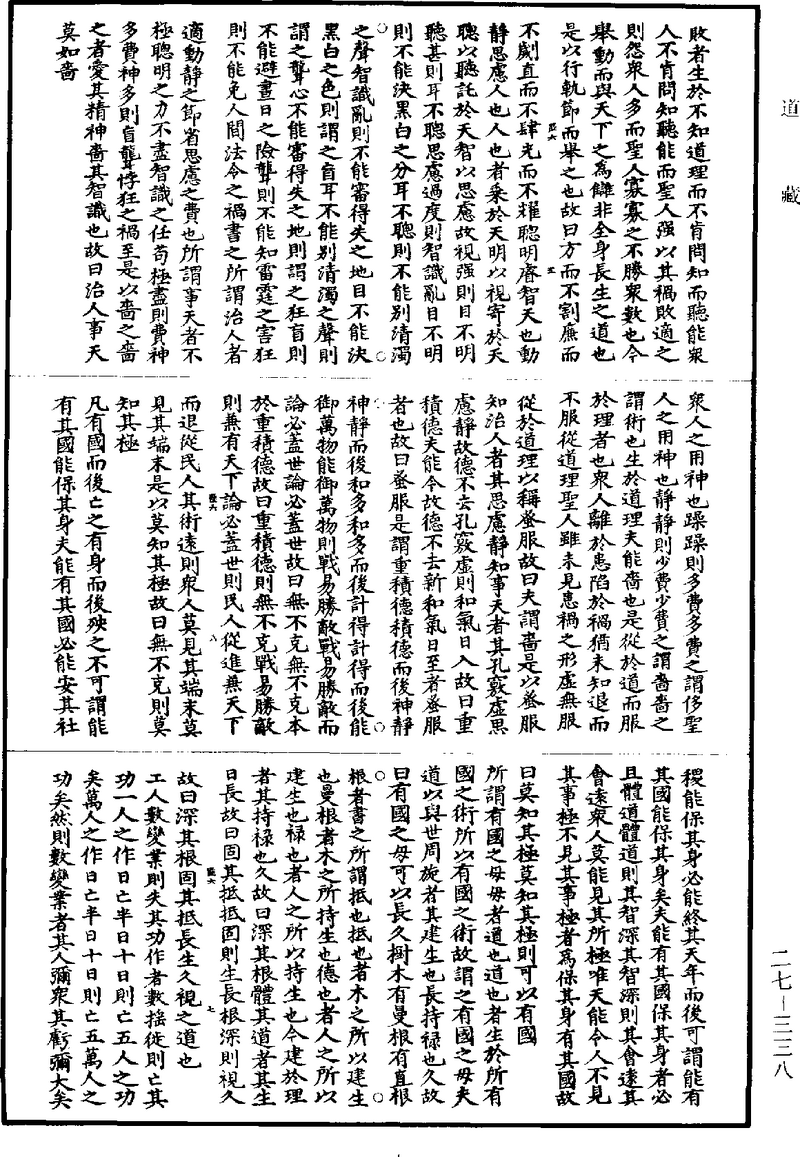 道藏
敗者生於不知道理而不肯問知而聽能衆
人不肯問知聽能而聖人强以其禍敗適之
則怨衆人多而聖人寡寡之不勝衆數也今
舉動而與天下之為讎非全身長生之道也
是以行軌節而舉之也故曰方而不割廉而
不劌直而不肆光而不耀聰明睿智天也動
静思慮人也人也者乘於天明以視寄於天
聰以聽託於天智以思慮故視强則目不明
聽甚則耳不聰思慮過度則智識亂目不明
則不能決黑白之分耳不聰則不能別清濁
之聲智識亂則不能審得失之地目不能決
黑白之色則謂之盲耳不能別清濁之聲則
謂之聾心不能審得失之地則謂之狂盲則
不能避晝日之險聾則不能知雷霆之害狂
則不能免人間法令之禍書之所謂治人者
適動静之節省思慮之費也所謂事天者不
極聰明之力不盡智識之任苟極盡則費神
多費神多則盲聾悖狂之禍至是以嗇之嗇
之者愛其精神嗇其智識也故曰治人事天
莫如嗇
衆人之用神也躁躁則多費多費之謂侈聖
人之用神也静静則少費少費之謂嗇嗇之
謂術也生於道理夫能嗇也是從於道而服
於理者也衆人離於患陷於禍猶未知退而
不服從道理聖人雖未見患禍之形虛無服
從於道理以稱蚤服故曰夫謂嗇是以蚤服
知治人者其思慮静知事天者其孔竅虛思
慮静故德不去孔竅虛則和氣日入故曰重
積德夫能令故德不去新和氣日至者蚤服
者也故曰蚤服是謂重積德積德而後神静
神静而後和多和多而後計得計得而後能
御萬物能御萬物則戰易勝敵戰易勝敵而
論必蓋世論必蓋世故曰無不克無不克本
於重積德故曰重積德則無不克戰易勝敵
則兼有天下論必蓋世則民人從進兼天下
而退從民人其術遠則衆人莫見其端末莫
見其端末是以莫知其極故曰無不克則莫
知其極
凡有國而後亡之有身而後殃之不可謂能
有其國能保其身夫能有其國必能安其社
稷能保其身必能終其天年而後可謂能有
其國能保其身矣夫能有其國保其身者必
且體道體道則其智深其智深則其會遠其
會遠衆人莫能見其所極唯天能令人不見
其事極不見其事極者為保其身有其國故
曰莫知其極莫知其極則可以有國
所謂有國之母母者道也道也者生於所有
國之術所以有國之術故謂之有國之母夫
道以與世周旋者其建生也長持禄也久故
曰有國之母可以長久樹木有曼根有直根
根者書之所謂抵也抵也者木之所以建生
也曼根者木之所持生也德也者人之所以
建生也禄也者人之所以持生也今建於理
者其持禄也久故曰深其根體其道者其生
日長故曰固其抵抵固則生長根深則視久
故曰深其根固其抵長生久視之道也
工人數變業則失其功作者數摇徙則亡其
功一人之作日亡半日十日則亡五人之功
矣萬人之作日亡半日十日則亡五萬人之
功矣然則數變業者其人彌衆其虧彌大矣
二七-三三八